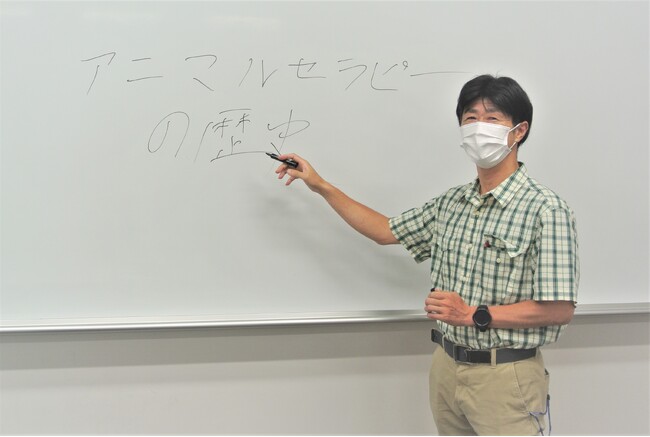 アニマルセラピー
の歴史